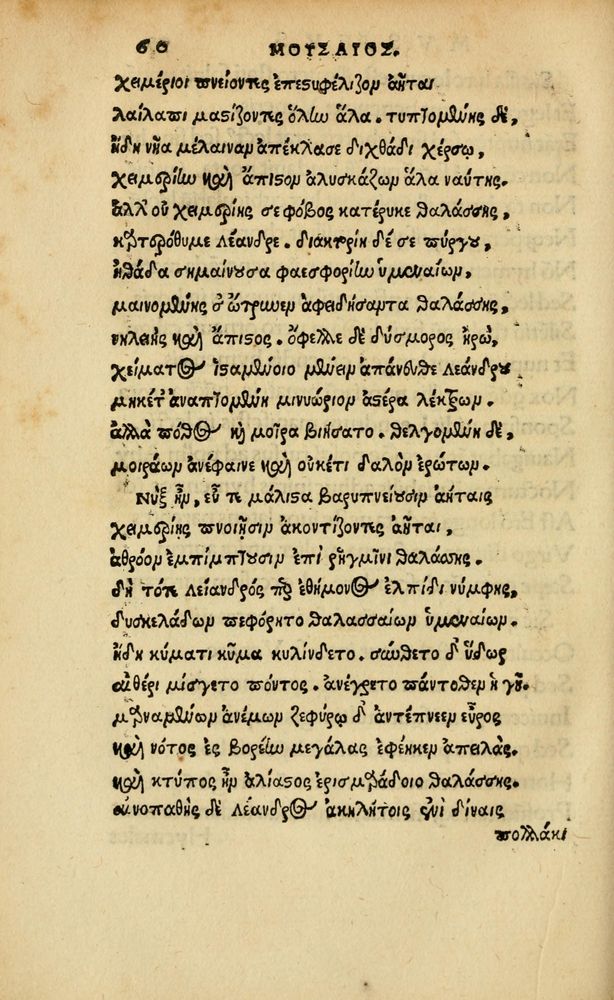 60 ΜΟΥΣΑΙΟΣ.
χειμέριοι πνείοντες ἐπεστυφέλιζον ἀῆται
λαίλαπι μαστίζοντες ὅλην ἅλα. τυπτομένης δὲ,
ἤδη νῆα μέλαιναν ἀπέκλασε διχθάδι χέρσῳ,
χειμερίην καὶ ἄπιστον ἀλυσκάζων ἅλα ναύτης.
ἀλλ' οὐ χειμερίης σε φόβος κατέρυκε θαλάσσης,
καρτερόθυμε Λέανδρε. διακτορίη δέ σε πύργου,
ἠθάδα σημαίνουσα φαεσφορίην ὑμεναίων,
μαινομένης δ' ὤτρυνεν ἀφειδήσαντα θαλάσσης,
νηλειὴς καὶ ἄπιστος. ὄφελλε δὲ δύσμορος ἡρὼ,
χείματος ἱσταμένοιο μένειν ἀπάνευθε Λεάνδρου
μηκέτ' ἀναπτομένη μινυώριον ἀστέρα λέκτρων.
ἀλλὰ πόθος κỳ μοῖρα βιήσατο. θελγομένη δὲ,
μοιράων ἀνέφαινε καὶ οὐκέτι δαλὸν ἐρώτων.
Νὺξ ἦν, εὖ τε μάλιστα βαρυπνείουσιν ἀήταις
χειμερίης πνοιῇσιν ἀκοντίζοντες ἀῆται,
ἀθρόον ἐμπίπτουσιν ἐπὶ ῥηγμῖνι θαλάσσης.
δὴ τότε Λείανδρός περ ἐθήμονος ἐλπίδι νύμφης,
δυσκελάδων πεφόρητο θαλασσαίων ὑμεναίων.
ἤδη κύματι κῦμα κυλίνδετο. σύνθετο δ' ὕδωρ
αἰθέρι μίσγετο πόντος. ἀνέγρετο πάντοθεν ἠχὴ.
μαρναμένων ἀνέμων ζεφύρῳ δ' ἀντέπνεεν εὖρος
καὶ νότος ἐς βορέην μεγάλας ἐφέηκεν ἀπειλάς.
καὶ κτύπος ἦν ἀλίαστος ἐρισμαράδοιο θαλάσσης.
αἰνοπαθὴς δὲ Λέανδρος ἀκηλήτοις ἐνὶ δίναις
πολλάκι